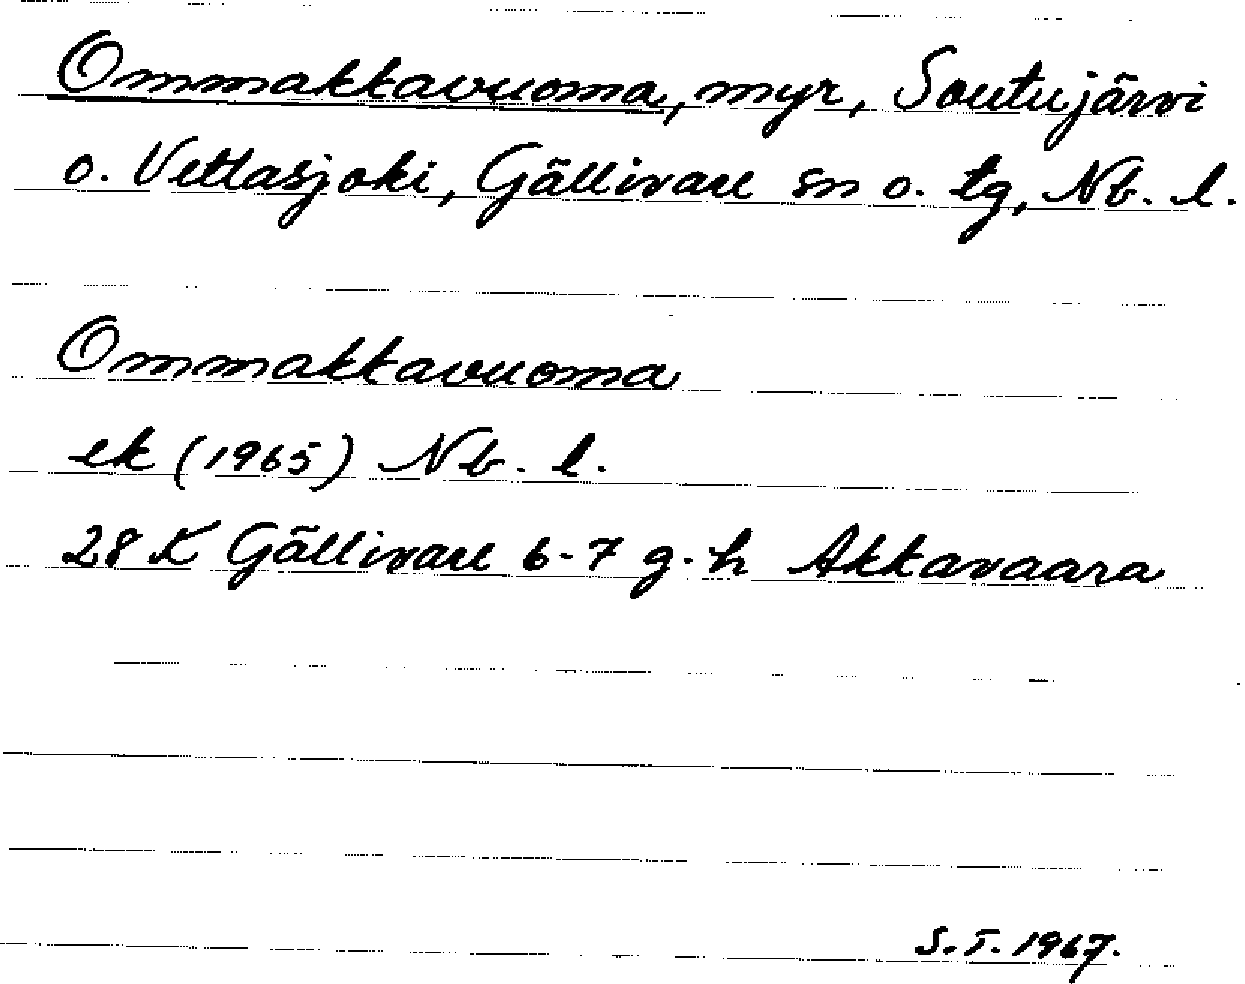 Ommakkavuoma, myr, Soutujärvi
o. Vettasjoki, Gällivare sn o. tg, Nb. l.
Ommakkavuoma
ek (1965) Nb. l.
28 K Gällivare 6-7 g-h Akkavaara
S.T. 1967.